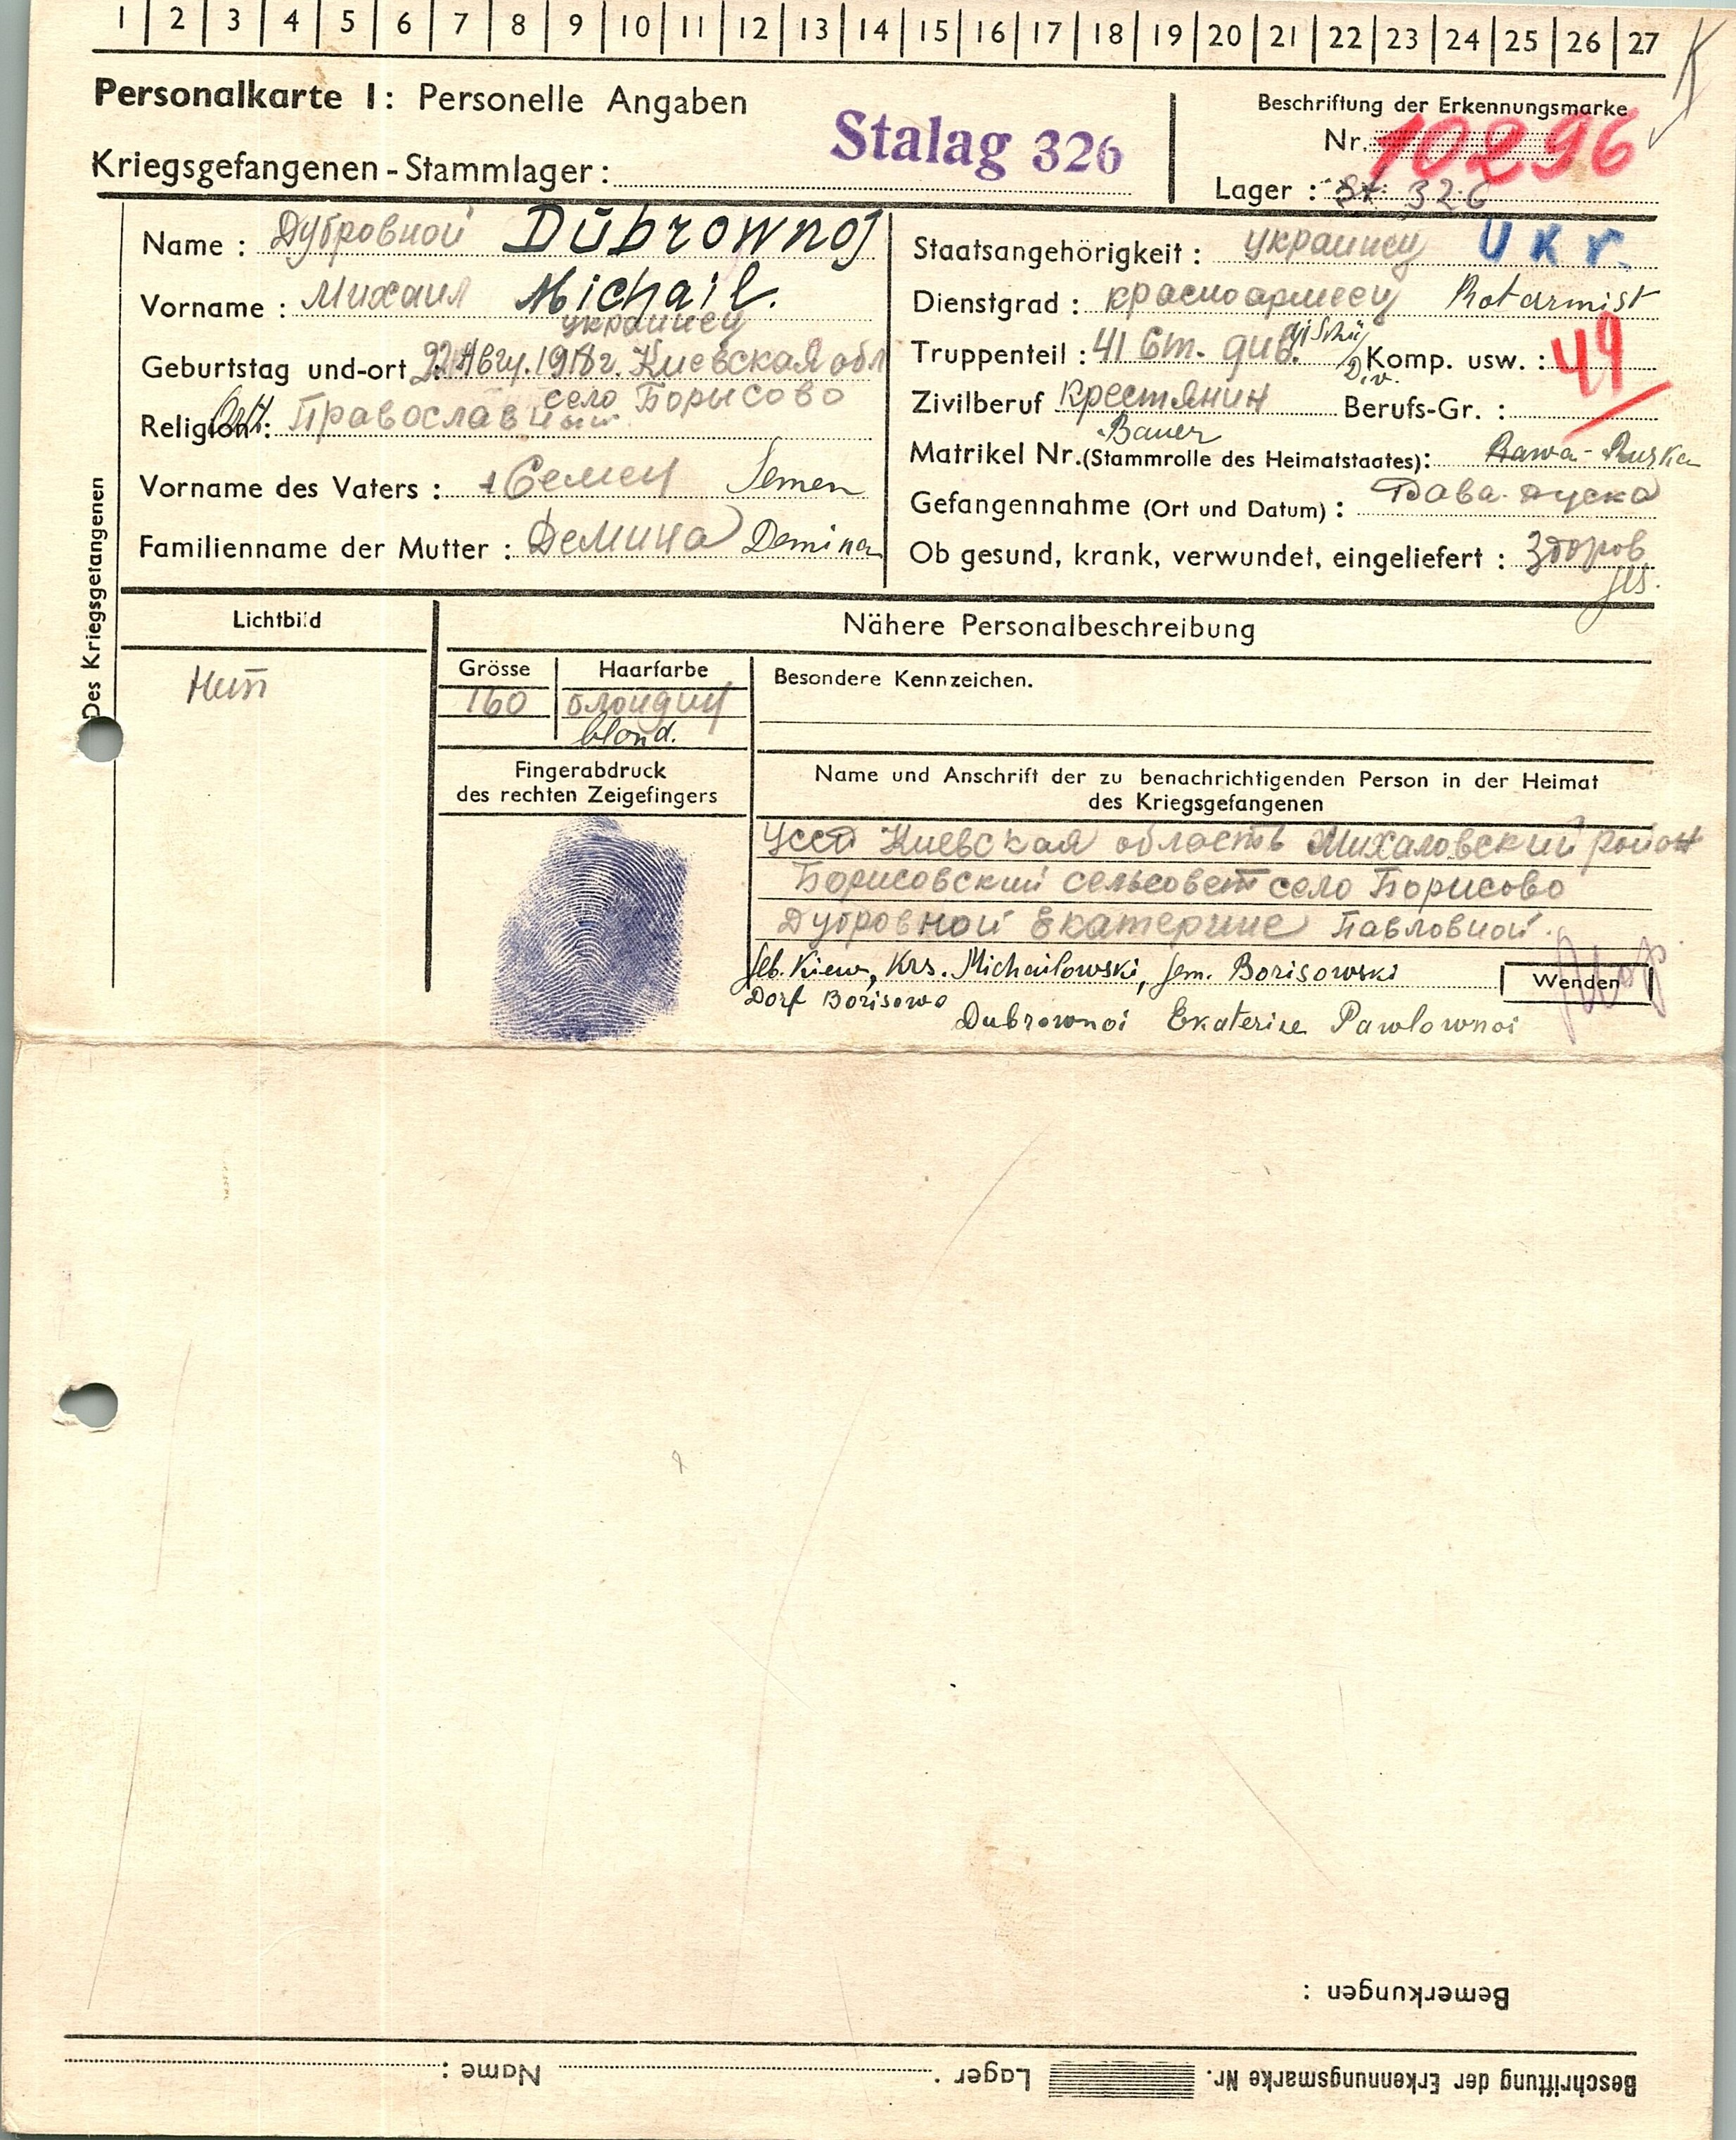 1 2 3 4 5 6 7 8 9 10 11 12 13 14 15 16 17 18 19 20 21 22 23 24 25 26 27
K
Personalkarte I: Personelle Angaben
Kriegsgefangenen-Stammlager: Stalag 326
Beschriftung der Erkennungsmarke
Nr. 10296
Lager: St. 326
Des Kriegsgefangenen
Name: Дубровной Dubrownoj
Vorname: Михаил Michail.
украинец
Geburtstag und-ort: 22 Авгу. 1918 г. Киевская обл
село Борисово
Religion: Orth. Православный
Vorname des Vaters: + Семен Semen
Familienname der Mutter: Демина Demina
Staatsangehörigkeit: украинец Ukr.
Dienstgrad: красноармеец Rotarmist
Truppenteil: 41 Ст. див. 41 Schü Div. Komp. usw.: 49
Zivilberuf Крестянин Berufs-Gr.:
Bauer
Matrikel Nr. (Stammrolle des Heimatstaates): Rawa-Ruska
Gefangennahme (Ort und Datum): Рава-Руска
Ob gesund, krank, verwundet, eingeliefert: Здоров
ges.
Lichtbild
Нет
Nähere Personalbeschreibung
Grösse
160
Haarfarbe
блондин
blond.
Besondere Kennzeichen.
Fingerabdruck
des rechten Zeigefingers
Name und Anschrift der zu benachrichtigenden Person in der Heimat
des Kriegsgefangenen
УССР Киевская область Михаловский район
Борисовский сельсовет село Борисово
Дубровной Екатерине Павловной.
Geb. Kiew, Krs. Michailowski, Gem. Borisowski
Wenden
Dorf Borisowo
Dubrownoi Ekaterine Pawlownoi
Bemerkungen:
Beschriftung der Erkennungsmarke Nr. Lager: Name: